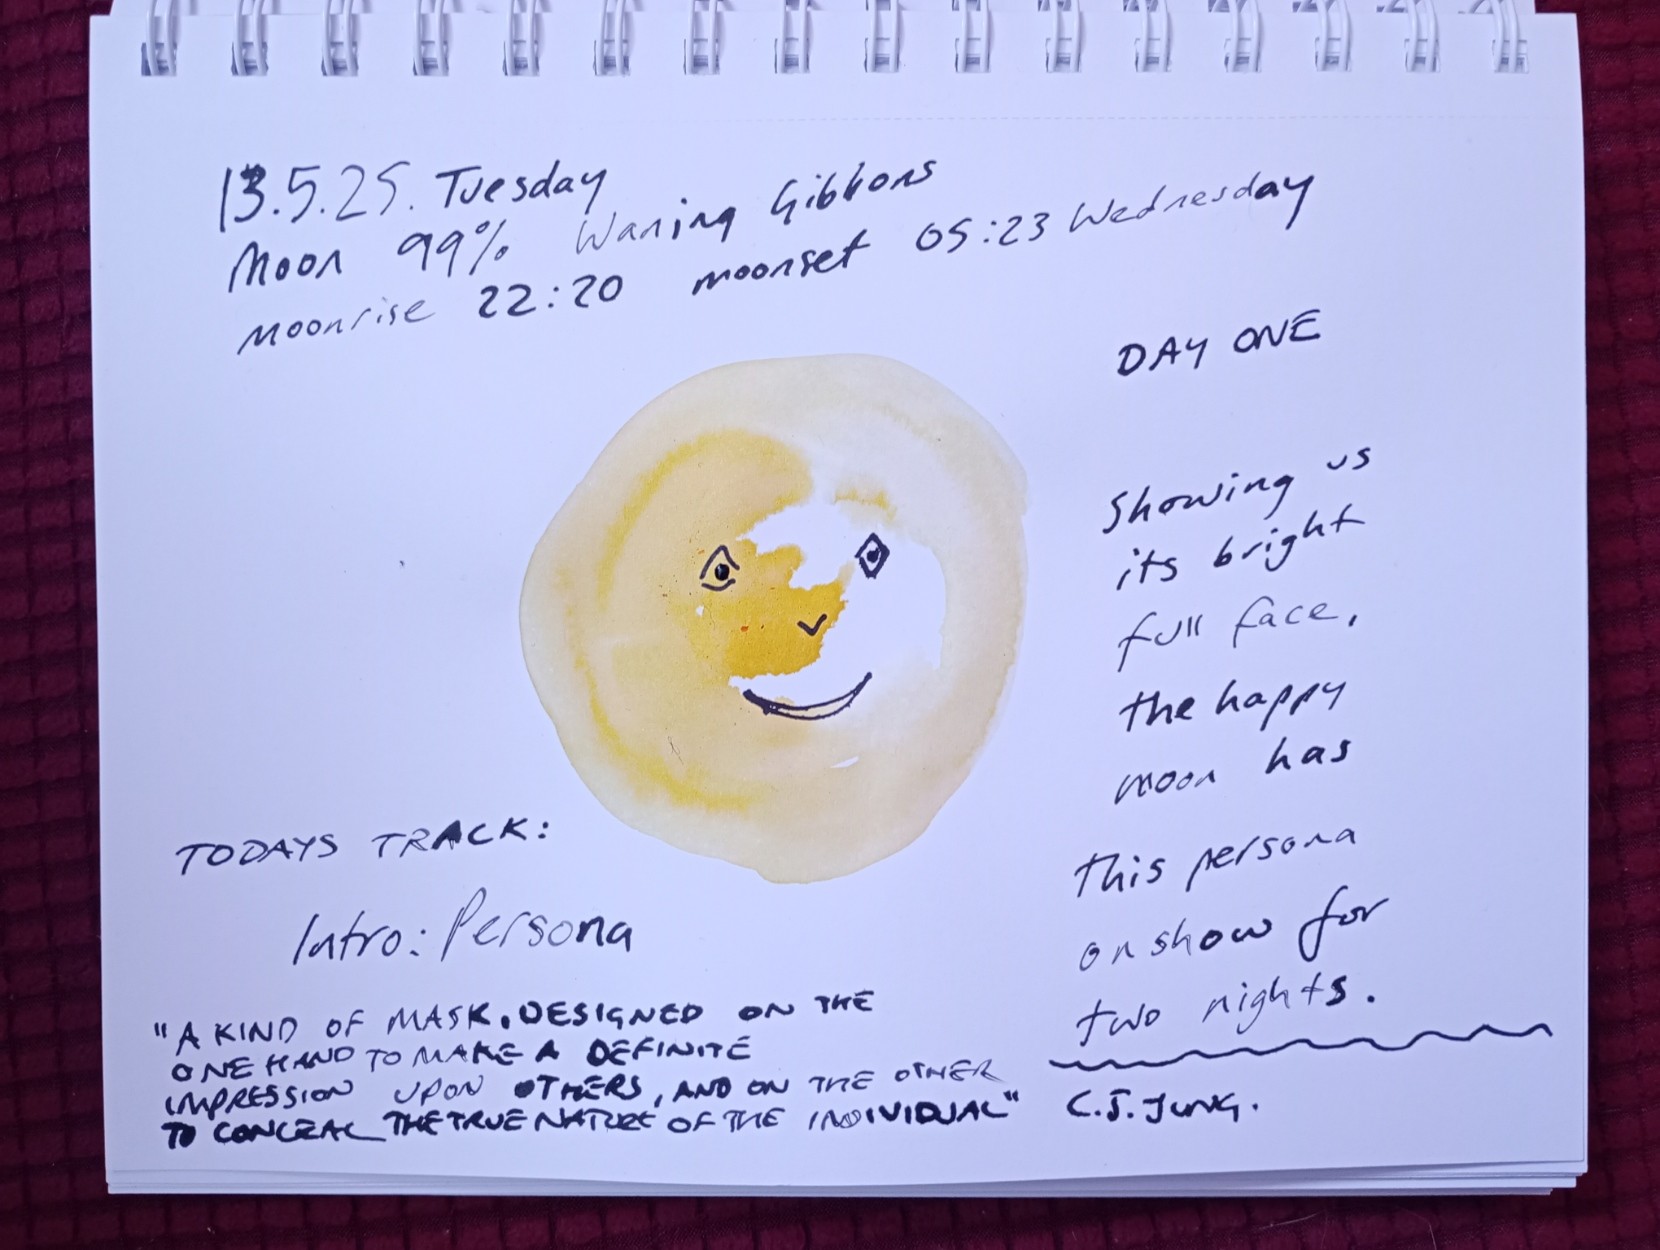 13.5.25. Tuesday
Moon 99% Waning Gibbons
moonrise 22:20 moonset 05:23 Wednesday
DAY ONE
Showing us
its bright
full face,
the happy
moon has
this persona
on show for
two nights.
TODAYS TRACK:
Intro: Persona
"A KIND OF MASK, DESIGNED ON THE
ONE HAND TO MAKE A DEFINITE
IMPRESSION UPON OTHERS, AND ON THE OTHER
TO CONCEAL THE TRUE NATURE OF THE INDIVIDUAL" C.J. JUNG.